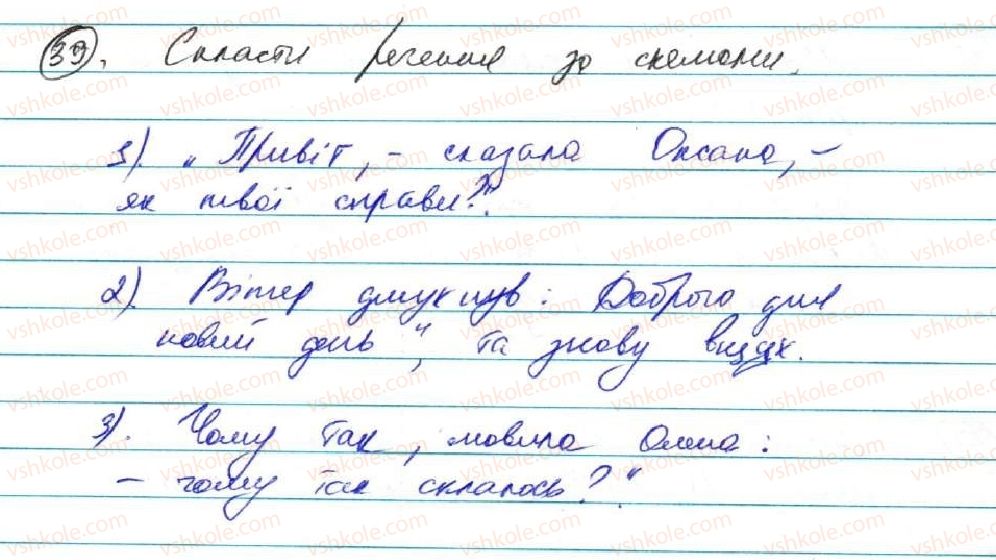 39. Скласти речення за схемами.
1). „Привіт, - сказала Оксана, -
як твої справи?".
2). Вітер дмухнув: Доброго дня
новий день", та знову вщух.
3). Чому так, мовила Олена:
- чому так склалось?"